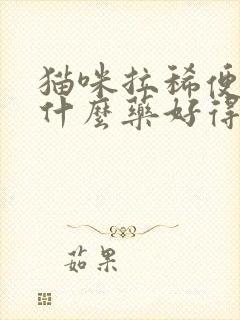 猫咪拉稀便
什麼藥好得
茹果